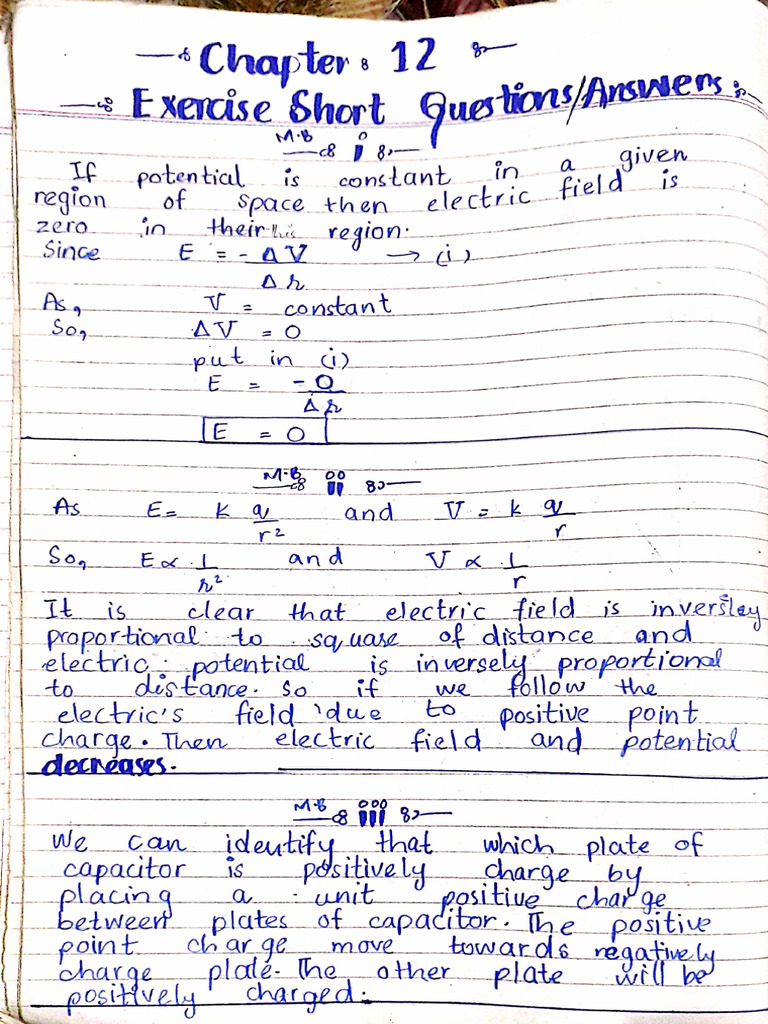 Chapter: 12
Exercise Short Questions/Answers:
M.B i
If potential is constant in a given
region of space then electric field is
zero in their this region.
Since E = - ΔV → (i)
Δr
As, V = constant
So, ΔV = 0
put in (i)
E = -0
Δr
E = 0
M.B ii
As E = k q and V = k q
r² r
So, E ∝ 1 and V ∝ 1
r² r
It is clear that electric field is inverslay
proportional to square of distance and
electric potential is inversely proportional
to distance. So if we follow the
electric's field due to positive point
charge. Then electric field and potential
decreases.
M.B iii
We can identify that which plate of
capacitor is positively charge by
placing a unit positive charge
between plates of capacitor. The positive
point charge move towards negatively
charge plate. The other plate will be
positively charged.